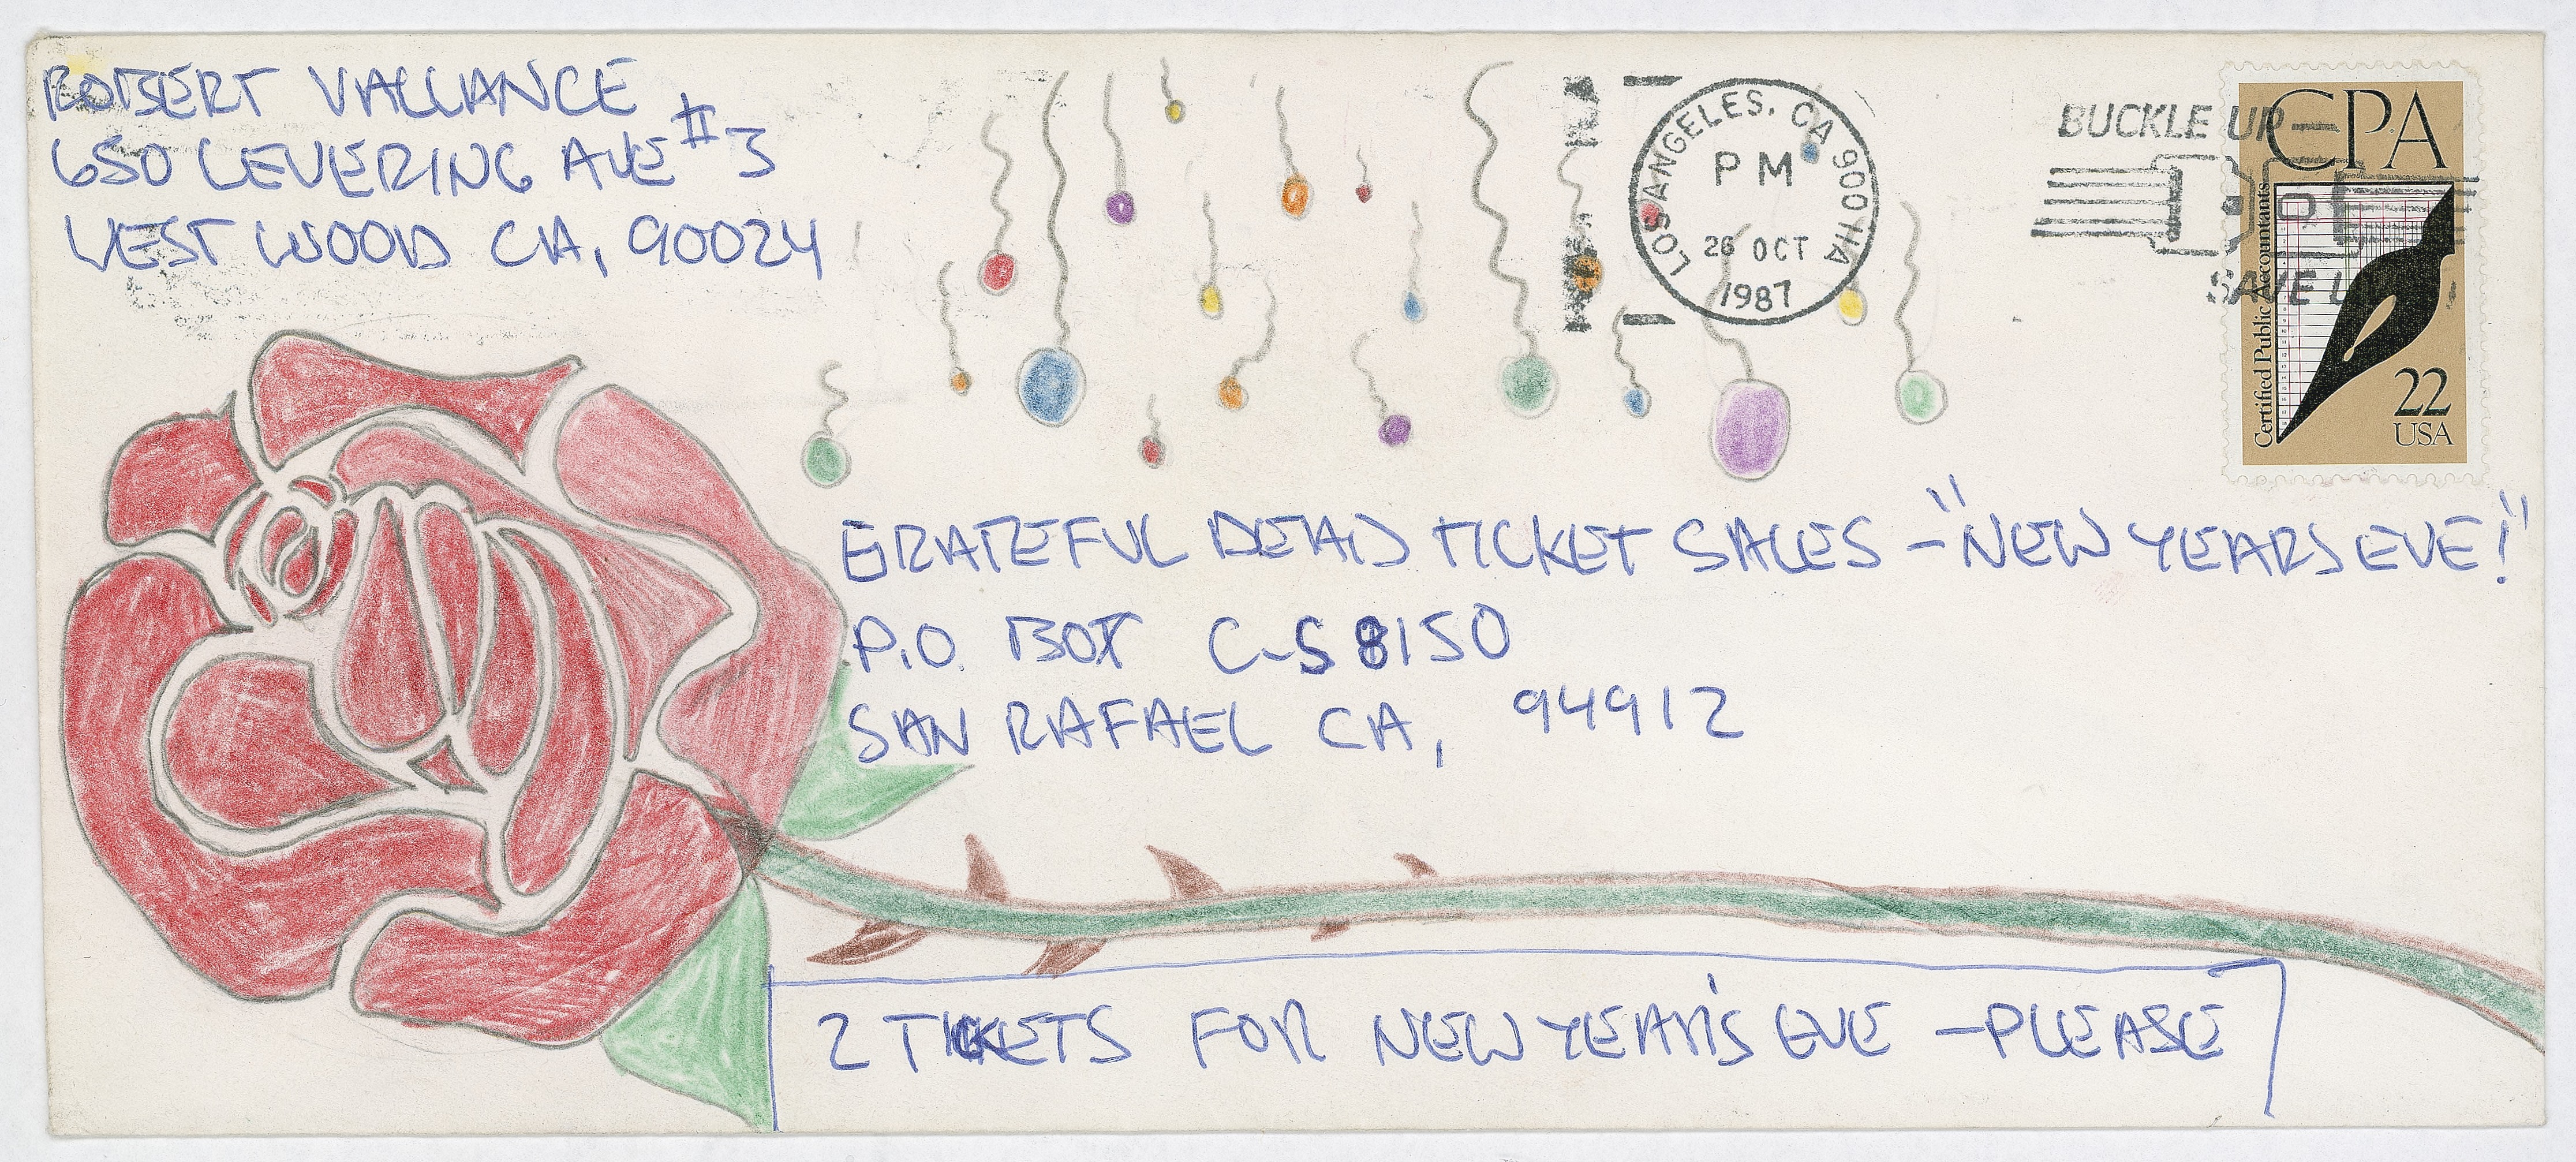 ROBERT VALLANCE
650 LEVERING AVE #3
WEST WOOD CA, 90024
LOS ANGELES, CA 900
PM
26 OCT
1987
BUCKLE UP
SAVE L
CPA
Certified Public Accountants
22
USA
GRATEFUL DEAD TICKET SALES - "NEW YEARS EVE!"
P.O. BOX C-S 8150
SAN RAFAEL CA, 94912
2 TICKETS FOR NEW YEAR'S EVE - PLEASE